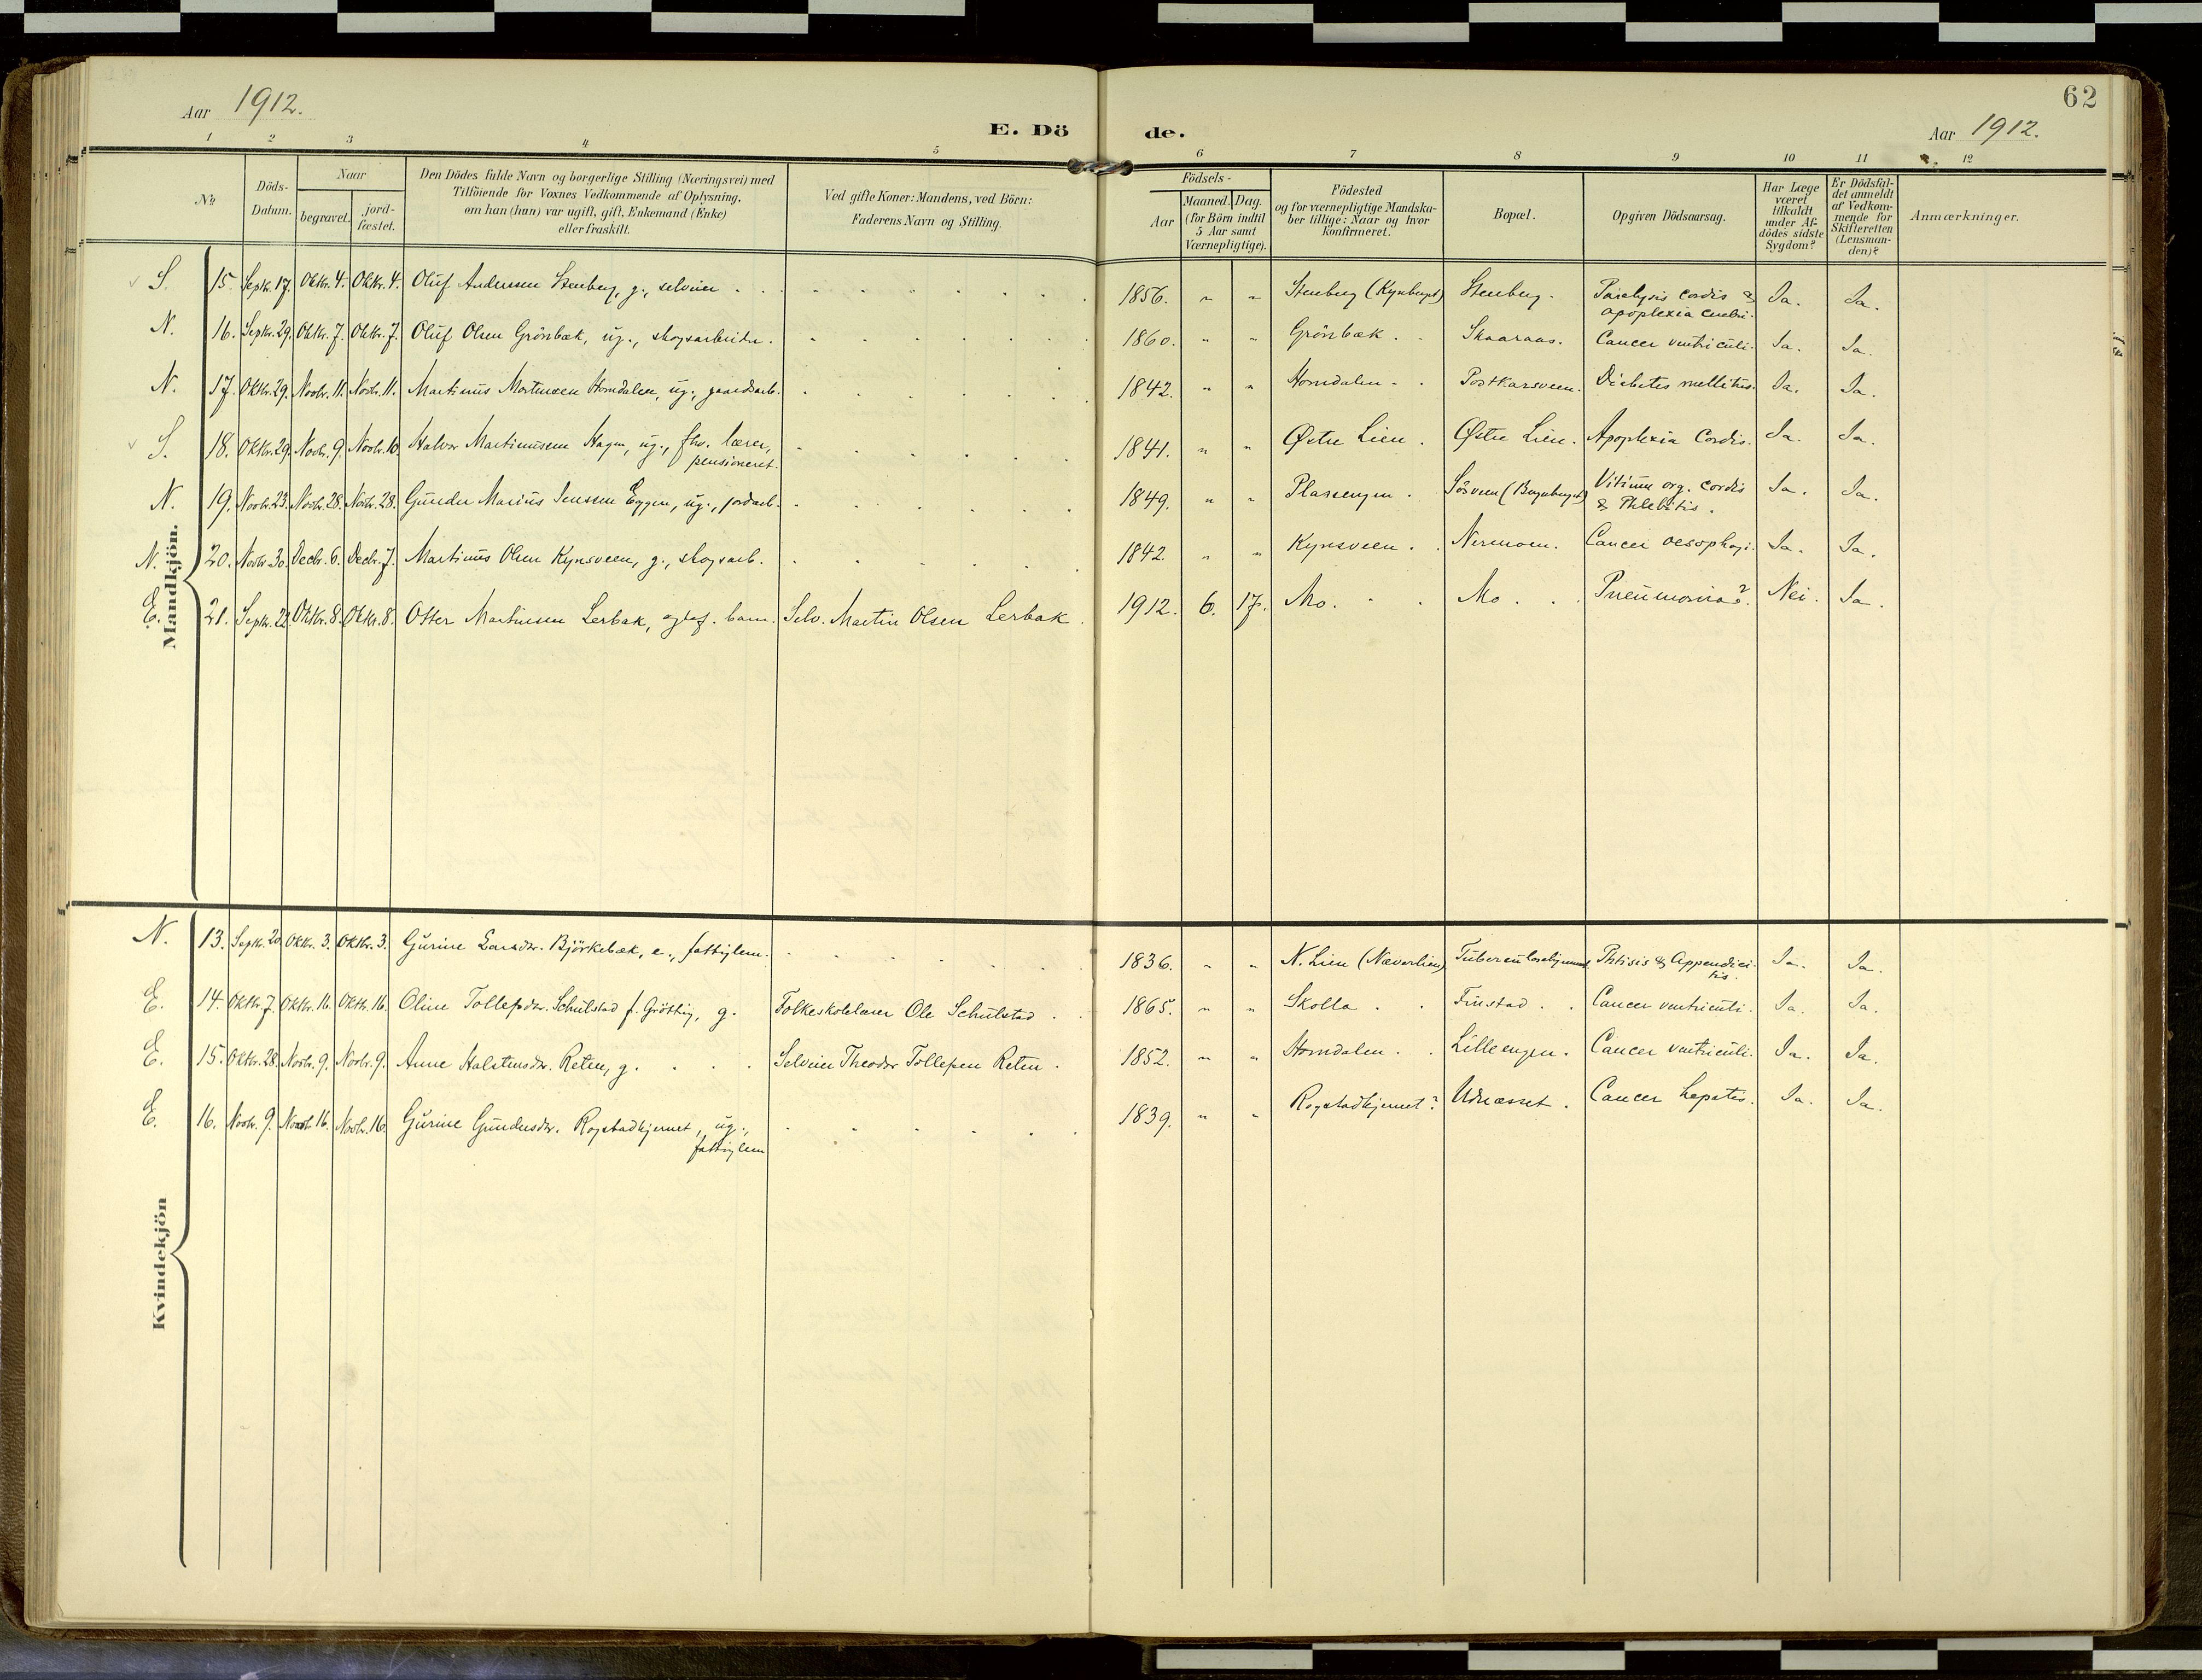 62
Aar 1912.
E. Dö de.
Aar 1912.
1 2 3 4 5 6 7 8 9 10 11 12
No
Döds-Datum.
Naar
begravet.
jord-fæstet.
Den Dödes fulde Navn og borgerlige Stilling (Næringsvei) med
Tilföiende for Voxnes Vedkommende af Oplysning,
om han (hun) var ugift, gift, Enkemand (Enke)
eller fraskilt.
Ved gifte Koner: Mandens, ved Börn:
Faderens Navn og Stilling.
Födsels-
Aar
Maaned. Dag.
(for Börn indtil
5 Aar samt
Værnepligtige).
Födested
og for værnepligtige Mandska-
ber tillige: Naar og hvor
konfirmeret.
Bopæl.
Opgiven Dödsaarsag.
Har Læge
været
tilkaldt
under Af-
dödes sidste
Sygdom?
Er Dödsfal-
det anmeldt
af Vedkom-
mende for
Skifteretten
(Lensman-
den)?
Anmærkninger.
Mandkjön.
S. 15. Septr. 17. Oktbr. 4. Oktbr. 4. Oluf Andersen Stenberg, g., selveier 1856. " " Stenberg (Kynberget) Stenberg. Paralysis cordis & Ja. Ja.
apoplexia cerebri.
N. 16. Septr. 29. Oktbr. 7. Oktbr. 7. Oluf Olsen Grönbæk, ug., skogsarbeider. 1860. " " Grönbæk. Skaaraas. Cancer ventriculi. Ja. Ja.
N. 17. Oktbr. 29. Novbr. 11. Novbr. 11. Martinus Mortensen Homdalen, ug., gaardsarb. 1842. " " Homdalen. Postkarsveen. Diabetes mellitus. Ja. Ja.
S. 18. Oktbr. 29. Novbr. 9. Novbr. 10. Halvor Martinussen Hagen, ug., fhv. lærer, 1841. " " Østre Lien. Østre Lien. Apoplexia Cordis. Ja. Ja.
pensioneret.
N. 19. Novbr. 23. Novbr. 28. Novbr. 28. Gunder Marius Jenssen Eggen, ug., jordarb. 1849. " " Plassengen. Såsveen (Berger) Vitium org. cordis Ja. Ja.
& Phlebitis.
N. 20. Novbr. 30. Decbr. 6. Decbr. 7. Martinus Olsen Kynsveen, g., skogsarb. 1842. " " Kynsveen. Nermoen. Cancer oesophagi. Ja. Ja.
E. 21. Septr. 22. Oktbr. 8. Oktbr. 8. Otter Martinsen Lerbak, ægtef. barn. Selv. Martin Olsen Lerbak. 1912. 6. 17. Mo. Mo. Pneumonia?. Nei. Ja.
Kvindekjön
N. 13. Septr. 20. Oktbr. 3. Oktbr. 3. Gurine Larsdtr. Björkebæk, e., fattiglem. 1836. " " N. Lien (Næverlien) Tuberculosehjemmet Phtisis & Appendici- Ja. Ja.
tis.
E. 14. Oktbr. 7. Oktbr. 16. Oktbr. 16. Oline Tollefsdtr. Schulstad f. Grötting, g. Folkeskolelærer Ole Schulstad. 1865. " " Skolla. Finstad. Cancer ventriculi. Ja. Ja.
E. 15. Oktbr. 28. Novbr. 9. Novbr. 9. Anne Halstensdtr. Reten, g. Selveier Theodor Tollefsen Reten. 1852. " " Homdalen. Lilleengen. Cancer ventriculi. Ja. Ja.
E. 16. Novbr. 9. Novbr. 16. Novbr. 16. Gurine Gundersdtr. Rogstadkjernet, ug., 1839. " " Rogstadkjernet? Udnæsset. Cancer hepatis. Ja. Ja.
fattiglem